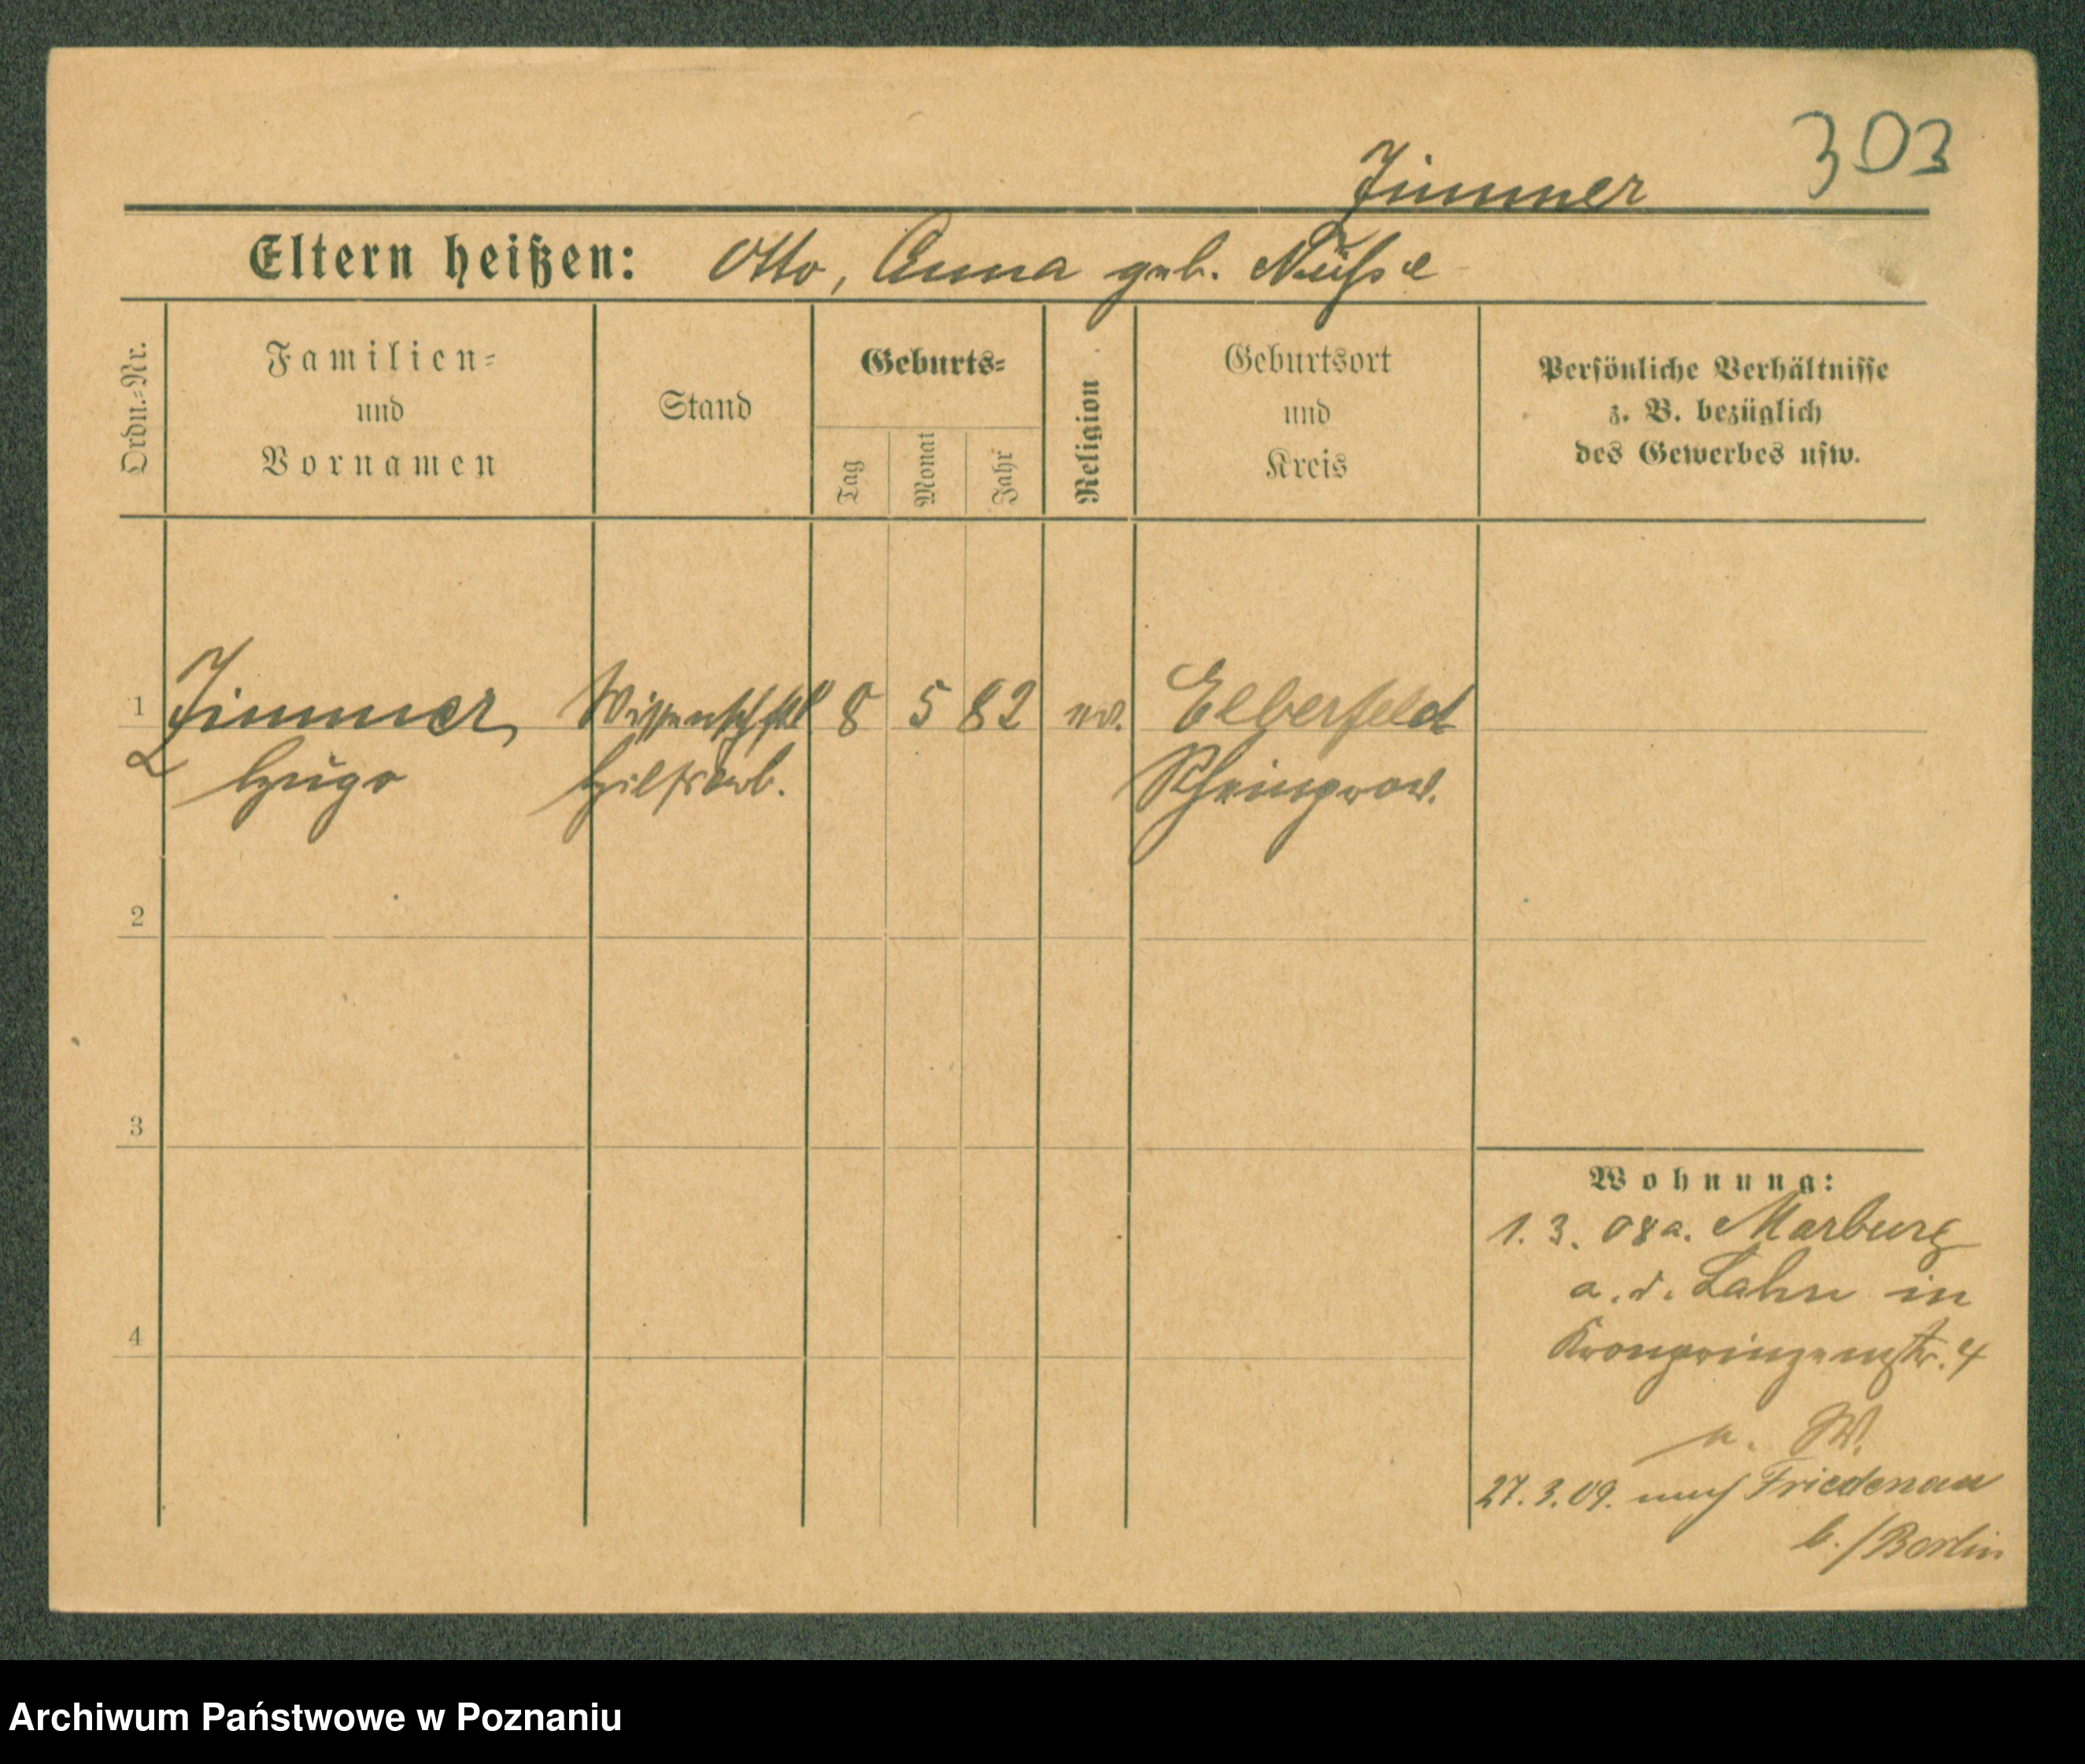 303
Zimmer
Eltern heißen: Otto, Anna geb. Nüßse
Ordn.-Nr.
Familien-
und
Vornamen
Stand
Geburts-
Tag
Monat
Jahr
Religion
Geburtsort
und
Kreis
Persönliche Verhältnisse
z. B. bezüglich
des Gewerbes usw.
1 Zimmer, Wissenschftl 8 5 82 ev. Elberfeld
Hugo Hilfsarb. Rheinprov.
2
3
4
Wohnung:
1. 3. 08 a. Marburg
a. d. Lahn in
Kronprinzenstr. 4
a. W.
27. 3. 09. nach Friedenau
b./Berlin
Archiwum Państwowe w Poznaniu